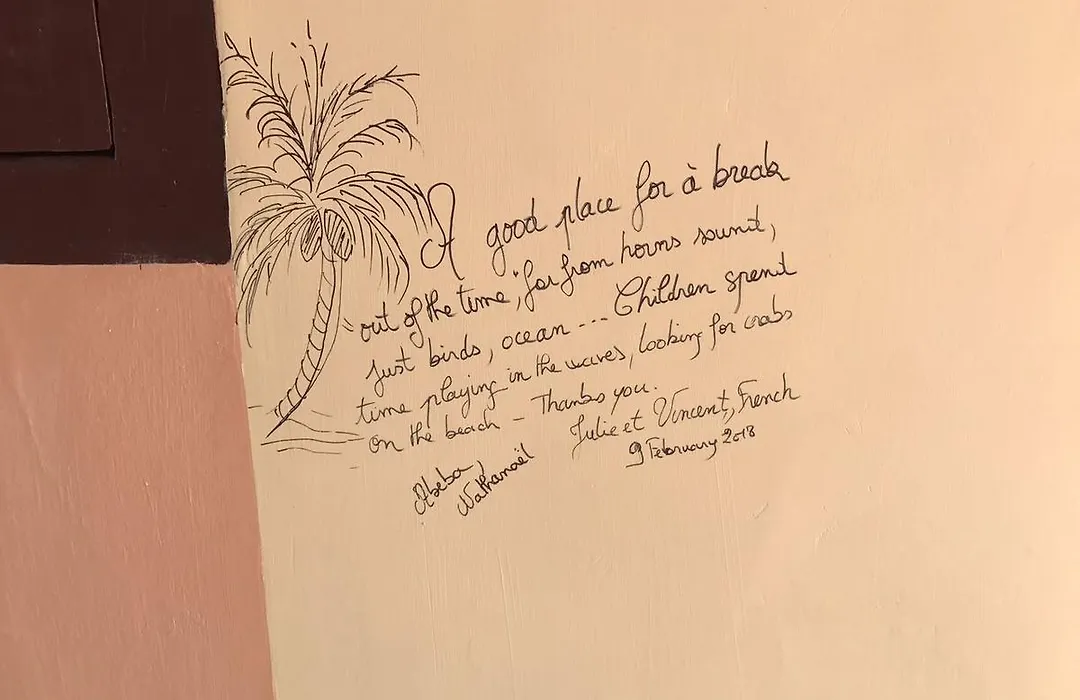 A good place for à break
"out of the time", far from horns sound,
just birds, ocean --- Children spend
time playing in the waves, looking for crabs
on the beach - Thanks you.
Julie et Vincent, French
9 February 2018
Abeba,
Nathanaël